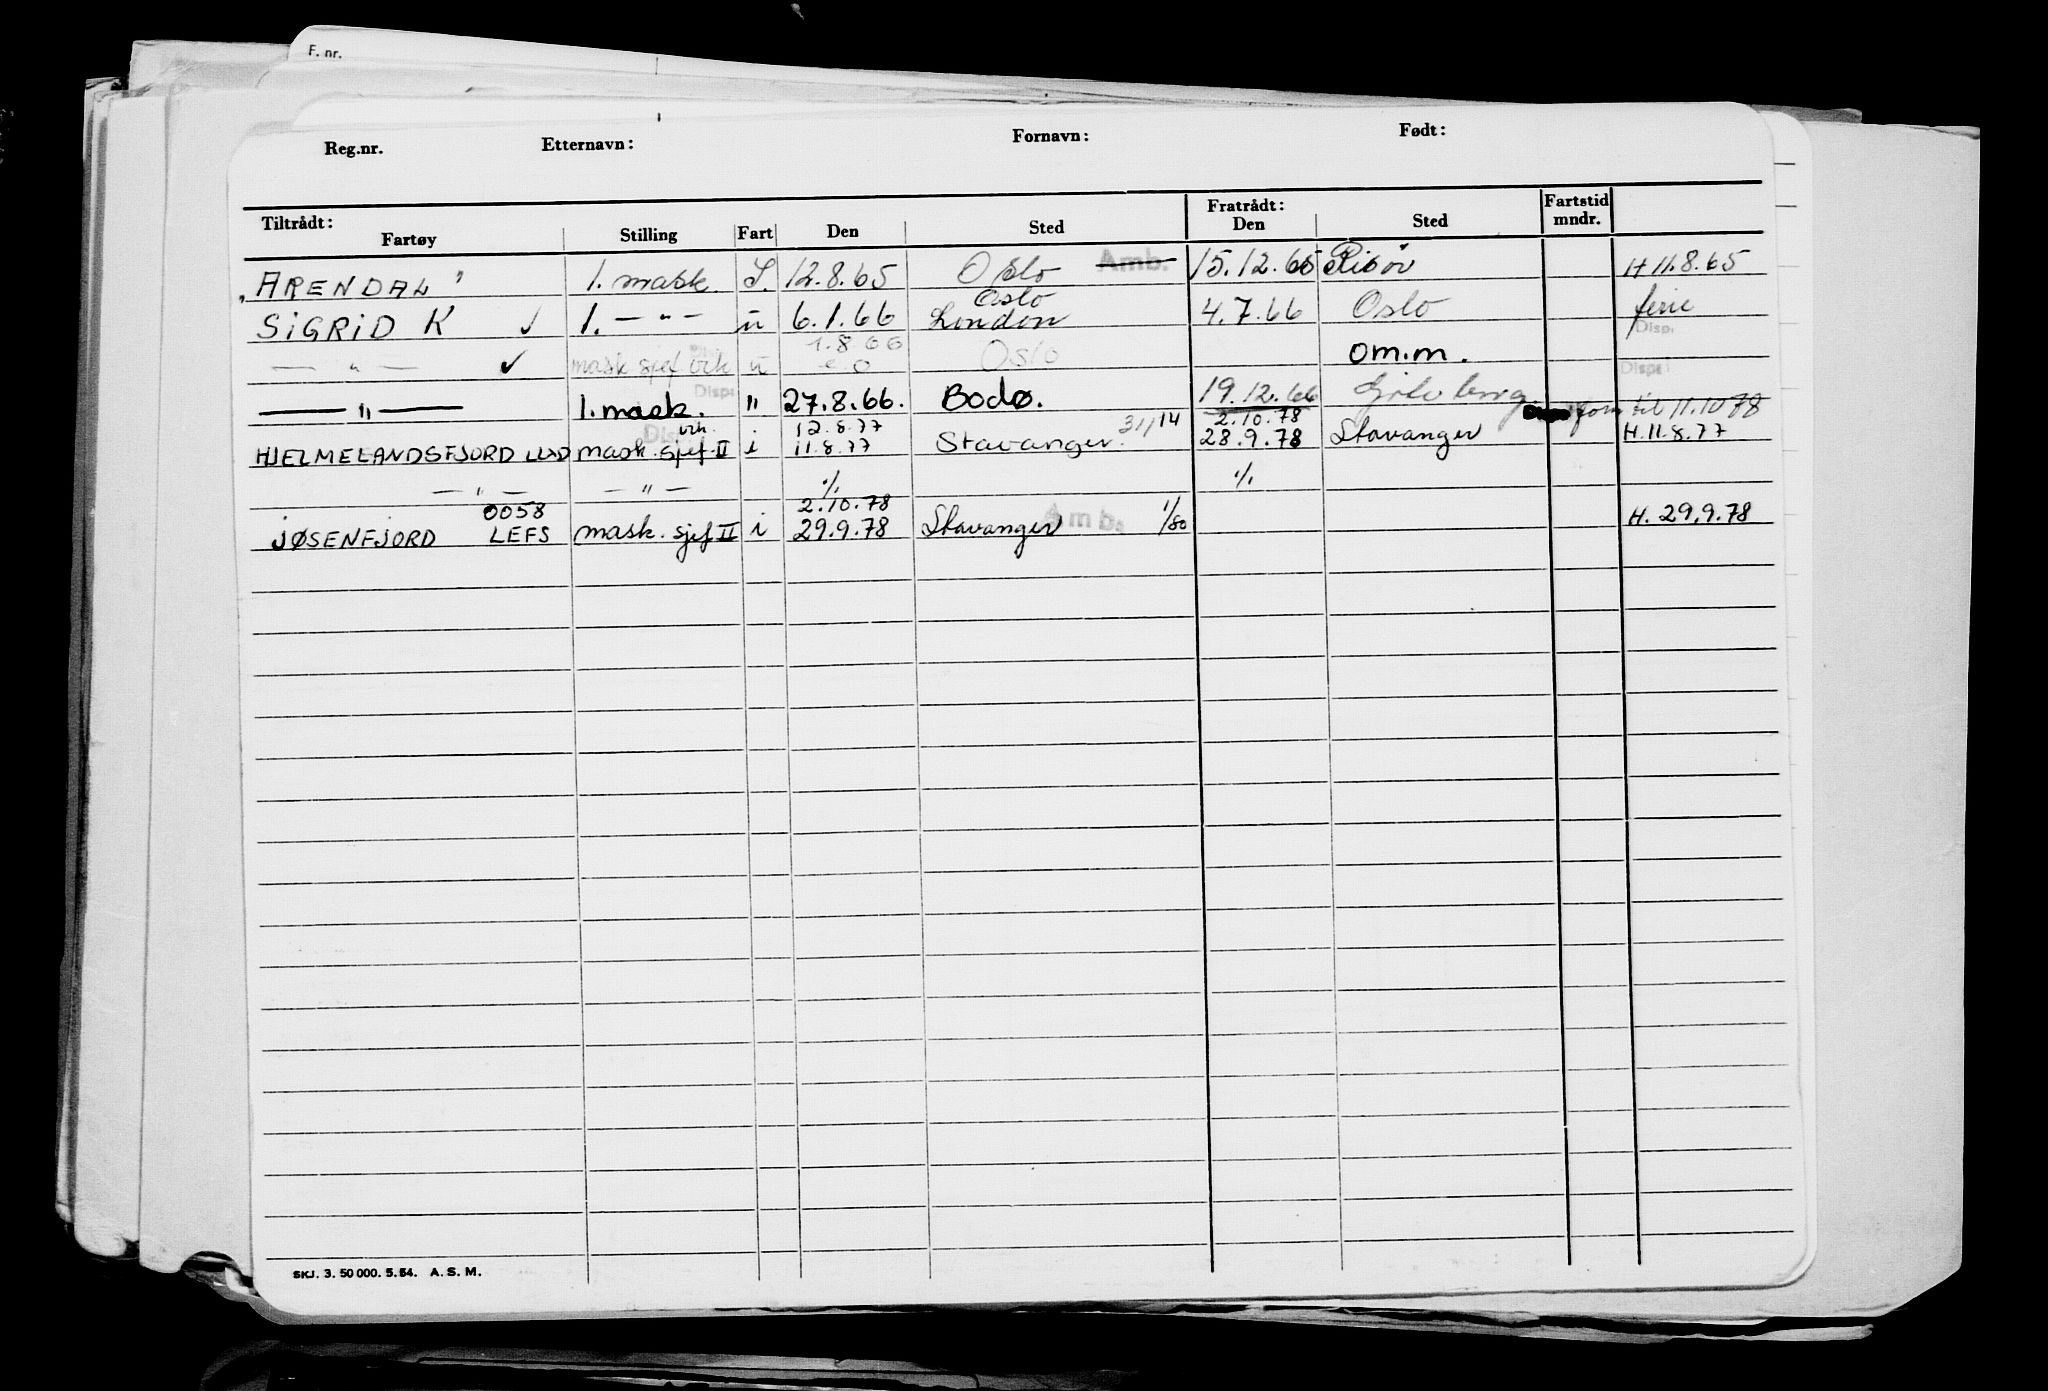 F. nr.
Reg.nr. Etternavn: Fornavn: Født:
Tiltrådt: Fratrådt: Fartstid
Fartøy Stilling Fart Den Sted Den Sted mndr.
"ARENDAL" 1. mask. S. 12.8.65 Oslo Amb. 15.12.65 Risør H 11.8.65
Oslo
SIGRID K ✓ 1. — " — u 6.1.66 London 4.7.66 Oslo ferie
Disp.
1.8.66
— " — ✓ mask. sjef vik u Oslo om.m. Disp.
Disp.
— " — 1. mask. " 27.8.66. Bodø. 19.12.66 Göteborg
Disp form til 11.10.78
vik. 12.8.77 31/14 2.10.78
HJELMELANDSFJORD LLXD mask. sjef II i 11.8.77 Stavanger. 28.9.78 Stavanger H. 11.8.77
— " — — " — % %
0058 2.10.78 Amb.
JØSENFJORD LEFS mask. sjef II i 29.9.78 Stavanger 1/80 H. 29.9.78
SKJ. 3. 50 000. 5. 64. A. S. M.